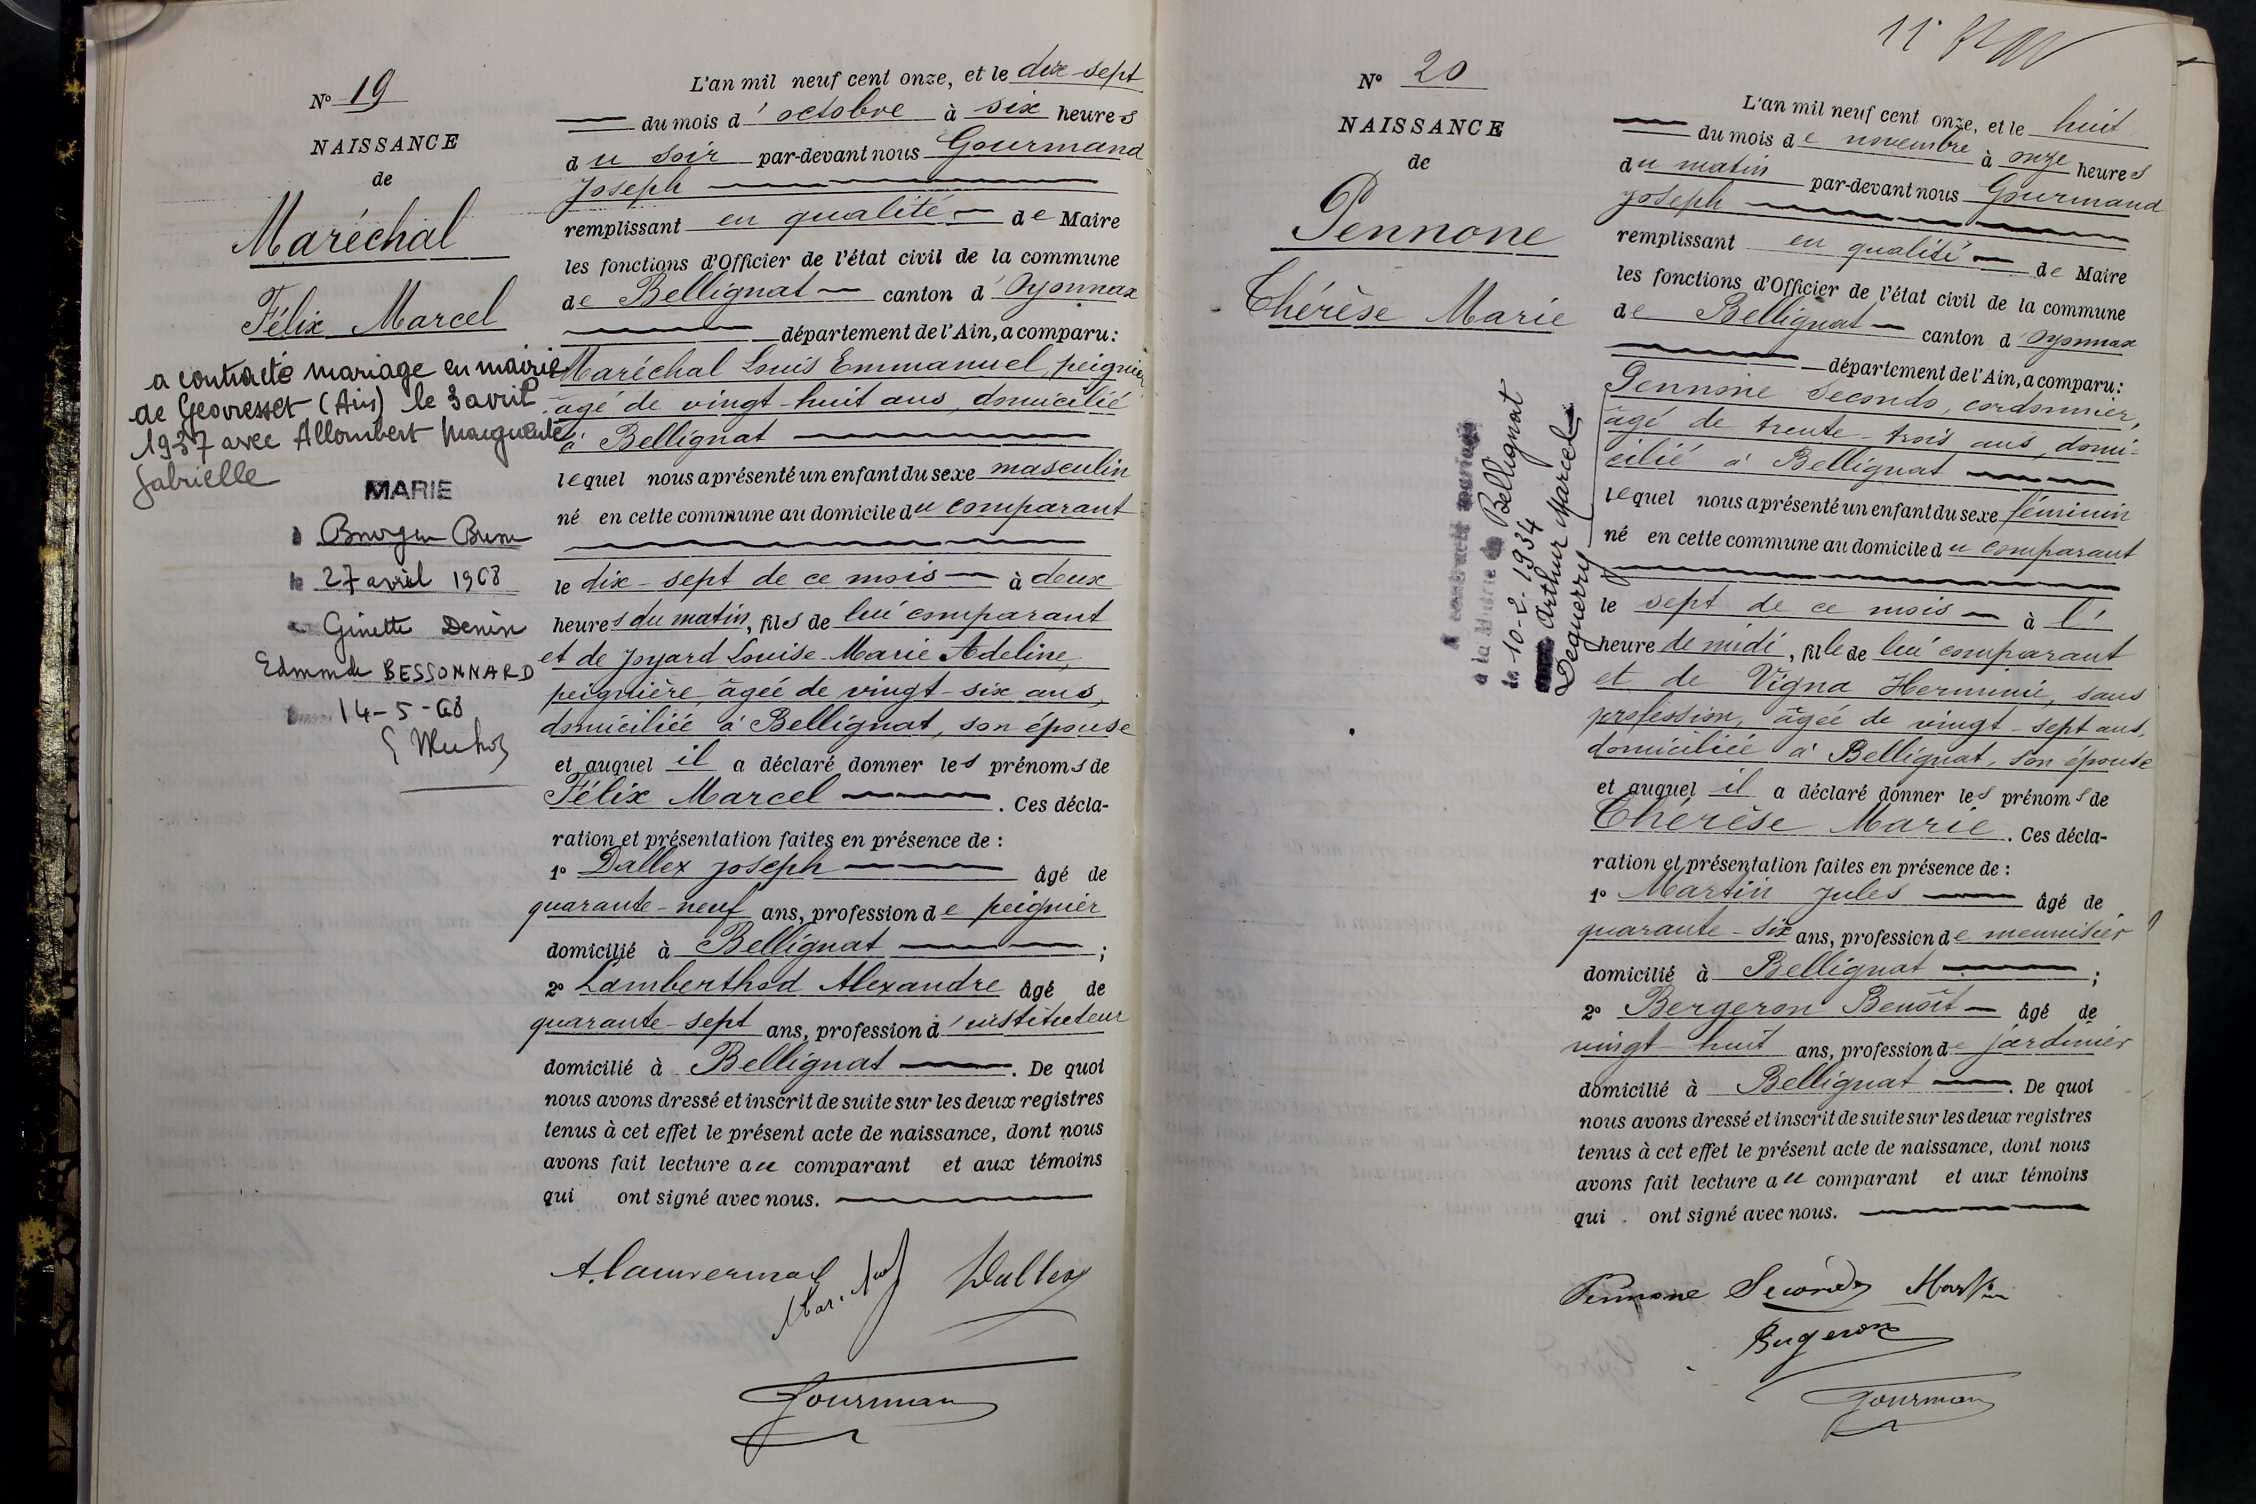 N° 19
NAISSANCE
de
Maréchal
Félix Marcel
a contracté mariage en mairie
de Géovresset (Ain) le 3 avril
1937 avec Allombert Marguerite
Gabrielle
MARIE
à
le 27 avril 1968
Ginette Denise
Edmonde BESSONNARD
14-5-68
L'an mil neuf cent onze, et le dix-sept
du mois d'octobre à six heures
du soir par-devant nous Gourmand
Joseph
remplissant en qualité de Maire
les fonctions d'Officier de l'état civil de la commune
de Bellignat canton d'Oyonnax
département de l'Ain, a comparu:
Maréchal Louis Emmanuel, peignier
âgé de vingt-huit ans, domicilié
à Bellignat
lequel nous a présenté un enfant du sexe masculin
né en cette commune au domicile du comparant
le dix-sept de ce mois à deux
heures du matin, fils de lui comparant
et de Joyard Louise Marie Adeline,
peignière, âgée de vingt-six ans,
domiciliée à Bellignat, son épouse
et auquel il a déclaré donner les prénoms de
Félix Marcel. Ces décla-
ration et présentation faites en présence de :
1° Dallex Joseph âgé de
quarante-neuf ans, profession de peignier
domicilié à Bellignat ;
2° Lamberthod Alexandre âgé de
quarante-sept ans, profession d'instituteur
domicilié à Bellignat. De quoi
nous avons dressé et inscrit de suite sur les deux registres
tenus à cet effet le présent acte de naissance, dont nous
avons fait lecture au comparant et aux témoins
qui ont signé avec nous.
Dallex
Gourmand
N° 20
NAISSANCE
de
Pennone
Thérèse Marie
A contracté mariage
à la Mairie de Bellignat
le 10-2-1934
avec Arthur Marcel
Deguerry
L'an mil neuf cent onze, et le huit
du mois de novembre à onze heures
du matin par-devant nous Gourmand
Joseph
remplissant en qualité de Maire
les fonctions d'Officier de l'état civil de la commune
de Bellignat canton d'Oyonnax
département de l'Ain, a comparu:
Pennone Secondo, cordonnier,
âgé de trente-trois ans, domi-
cilié à Bellignat
lequel nous a présenté un enfant du sexe féminin
né en cette commune au domicile du comparant
le sept de ce mois à l'
heure de midi, fille de lui comparant
et de Vigna Herminie, sans
profession, âgée de vingt-sept ans,
domiciliée à Bellignat, son épouse
et auquel il a déclaré donner les prénoms de
Thérèse Marie. Ces décla-
ration et présentation faites en présence de :
1° Martin Jules âgé de
quarante-six ans, profession de menuisier
domicilié à Bellignat ;
2° Bergeron Benoît âgé de
vingt-huit ans, profession de jardinier
domicilié à Bellignat. De quoi
nous avons dressé et inscrit de suite sur les deux registres
tenus à cet effet le présent acte de naissance, dont nous
avons fait lecture au comparant et aux témoins
qui ont signé avec nous.
Pennone Secondo Martin
Bergeron
Gourmand